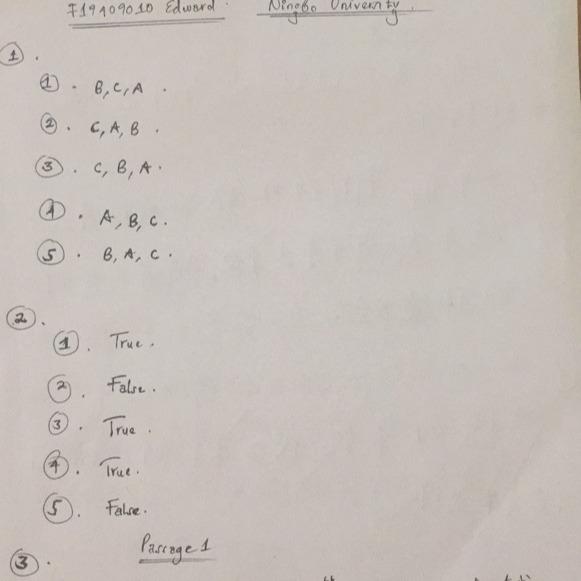 F19409010 Edward. Ningbo University.
①.
①. B, C, A.
②. C, A, B.
③. C, B, A.
④. A, B, C.
⑤. B, A, C.
②.
①. True.
②. False.
③. True.
④. True.
⑤. False.
③. Passage 1